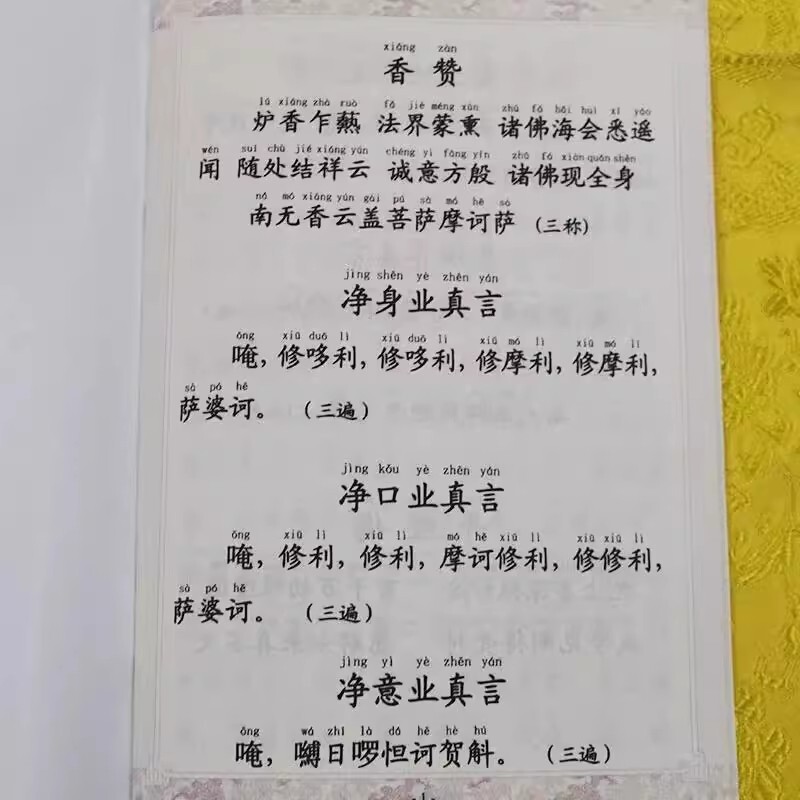 xiāng zàn
香 赞
lú xiāng zhà ruò fǎ jiè méng xūn zhū fó hǎi huì xī yáo
炉香乍爇 法界蒙熏 诸佛海会悉遥
wén suí chù jié xiáng yún chéng yì fāng yīn zhū fó xiàn quán shēn
闻 随处结祥云 诚意方殷 诸佛现全身
ná mó xiāng yún gài pú sà mó hē sà
南无香云盖菩萨摩诃萨 (三称)
jìng shēn yè zhēn yán
净身业真言
ōng xiū duō lì xiū duō lì xiū mó lì xiū mó lì
唵,修哆利,修哆利,修摩利,修摩利,
sà pó hē
萨婆诃。 (三遍)
jìng kǒu yè zhēn yán
净口业真言
ōng xiū lì xiū lì mó hē xiū lì xiū xiū lì
唵,修利,修利,摩诃修利,修修利,
sà pó hē
萨婆诃。 (三遍)
jìng yì yè zhēn yán
净意业真言
ōng wá zhī là dá hē hè hú
唵,嚩日啰怛诃贺斛。 (三遍)
1